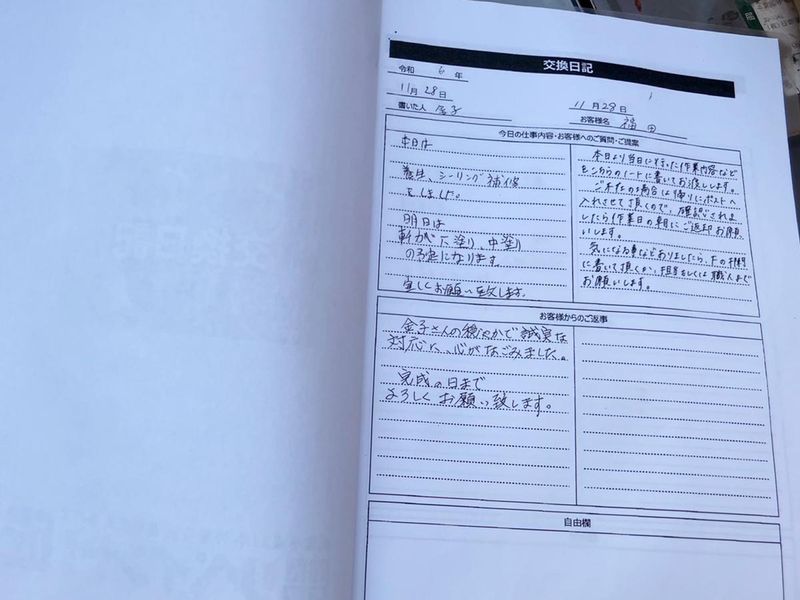 交換日記
令和 6 年
11月 28日
書いた人 金子
11月 28日
お客様名 福田
今日の仕事内容・お客様へのご質問・ご提案
本日は
養生、シーリング補修
をしました。
明日は
軒が下塗り、中塗り
の予定になります。
宜しくお願い致します。
本日より当日に行った作業内容など
を1からのノートに書いてお渡しします。
ご不在の場合は帰りにポストへ
入れさせて頂くので、確認されま
したら作業日の朝にご返却お願
いします。
気になる事などありましたら、下の欄
に書いて頂くか、担当もしくは職人まで
お願いします。
お客様からのご返事
金子さんの穏やかで誠実な
対応に、心がなごみました。
完成の日まで
よろしくお願い致します。
自由欄